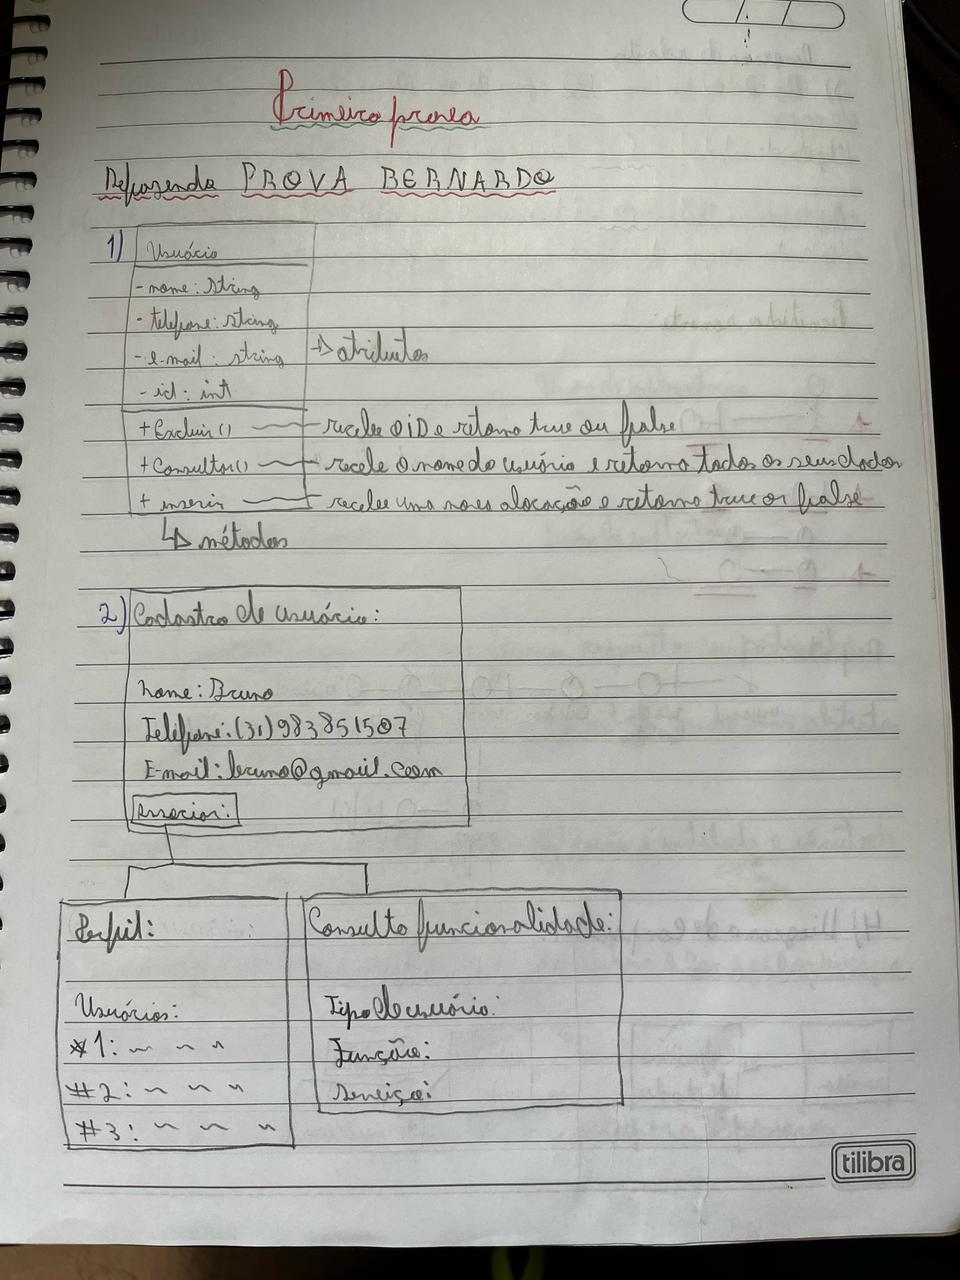 Primeira prova
Refazendo PROVA BERNARDO
1)
Usuário
- nome: string
- telefone: string
- e-mail: string
→ atributos
- id: int
+ Excluir() — recebe o iD e retorna true ou false
+ Consultar() — recebe o nome do usuário e retorna todos os seus dados
+ inserir — recebe uma nova alocação e retorna true or false
↳ métodos
2) Cadastro de usuário:
Nome: Bruno
Telefone: (31) 983851507
E-mail: bruno@gmail.com
Associar:
Perfil:
Usuários:
#1: ~ ~ ~
#2: ~ ~ ~
#3: ~ ~ ~
Consulta funcionalidade:
Tipo de usuário:
Função:
Serviço:
tilibra